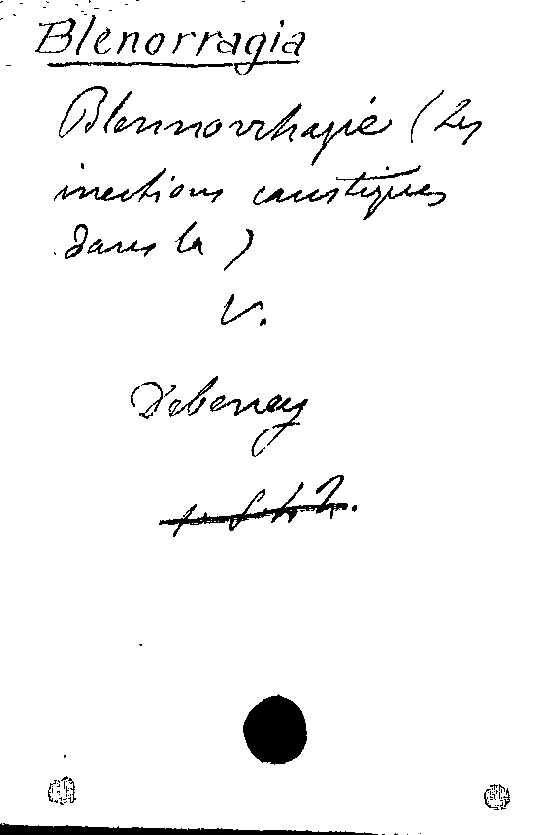 Blenorragia
Blennorrhagie (Les
inections caustiques
dans la)
V.
Debeney